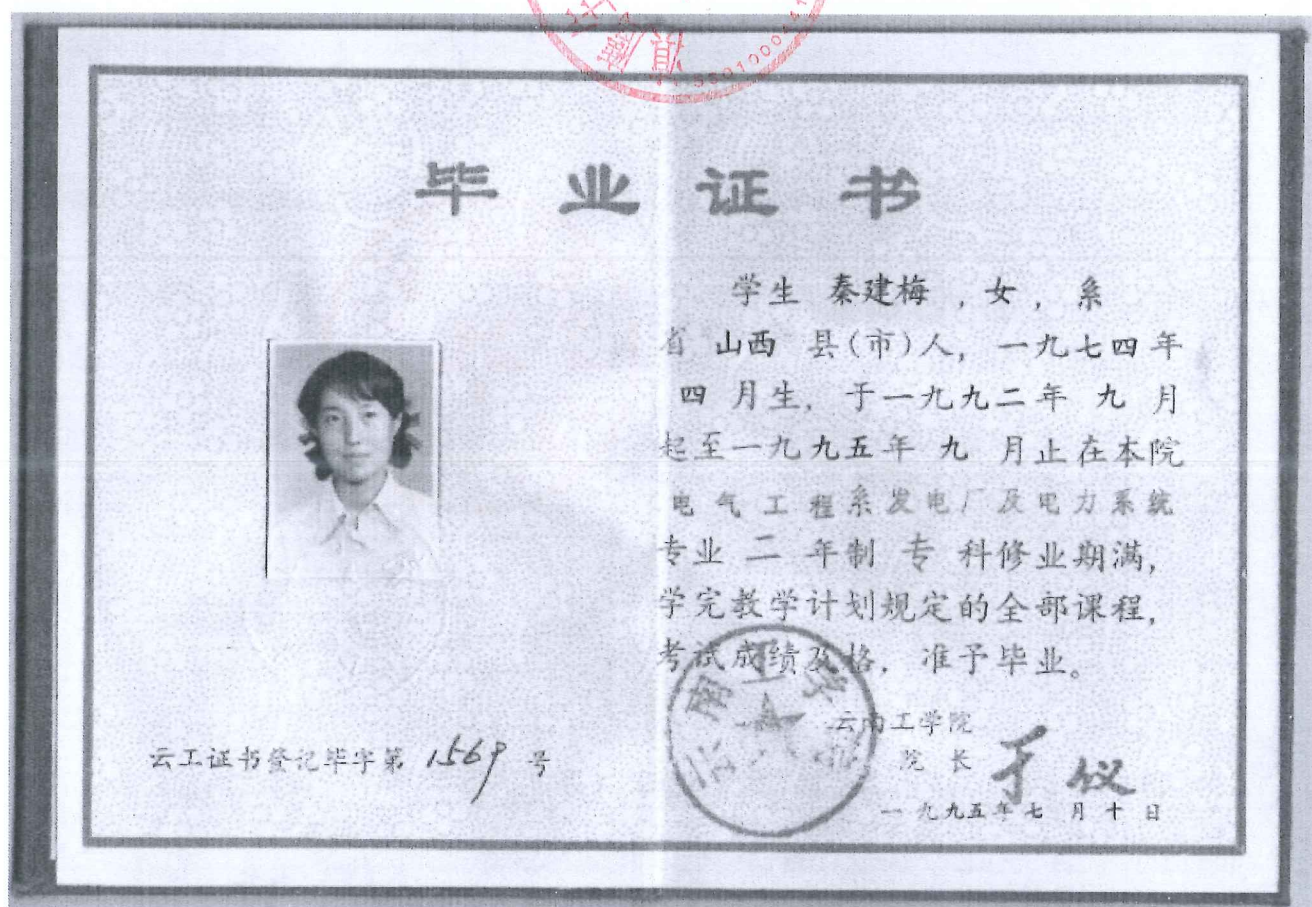 毕业证书
学生 秦建梅 , 女 , 系
省 山西 县(市)人, 一九七四年
四 月生, 于一九九二年 九 月
起至一九九五年 九 月止在本院
电气工程系发电厂及电力系统
专业 二 年制 专 科修业期满,
学完教学计划规定的全部课程,
考试成绩及格, 准予毕业。
云南工学院
院 长
云南工学院
一九九五年七月十日
云工证书登记毕字第 1569 号